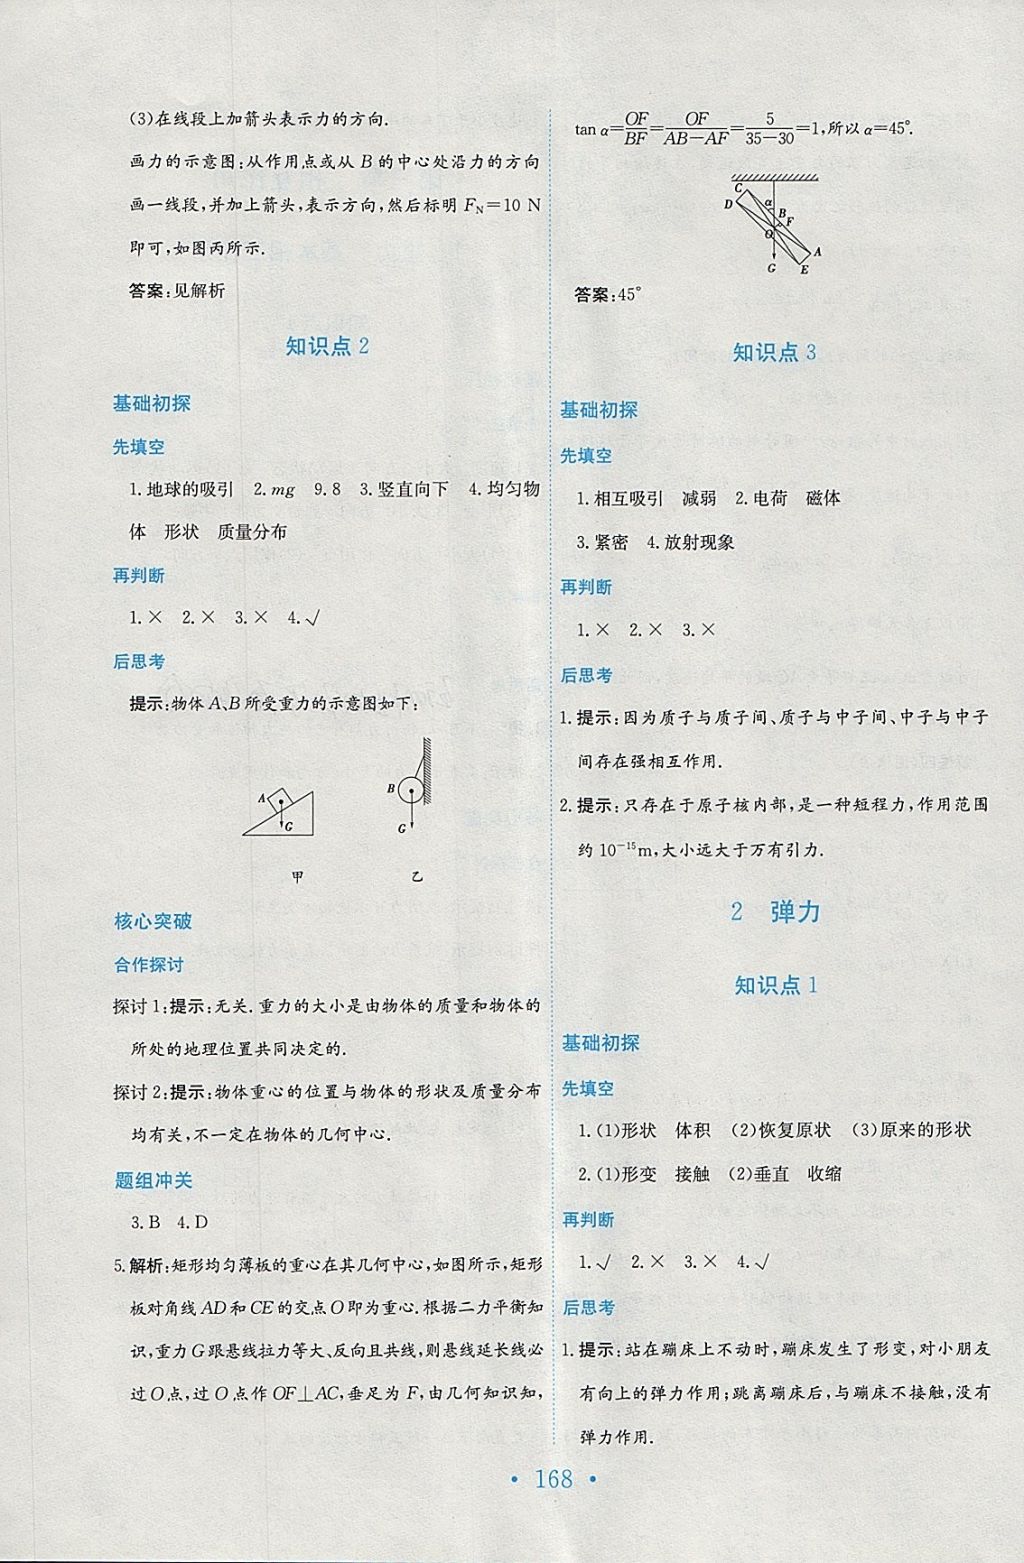 (3)在线段上加箭头表示力的方向.
画力的示意图:从作用点或从 B 的中心处沿力的方向
画一线段,并加上箭头,表示方向,然后标明 F_N=10 N
即可,如图丙所示.
答案:见解析
知识点 2
基础初探
先填空
1.地球的吸引 2.mg 9.8 3.竖直向下 4.均匀物
体 形状 质量分布
再判断
1.× 2.× 3.× 4.√
后思考
提示:物体 A、B 所受重力的示意图如下:
A
G
B
G
甲 乙
核心突破
合作探讨
探讨 1:提示:无关.重力的大小是由物体的质量和物体的
所处的地理位置共同决定的.
探讨 2:提示:物体重心的位置与物体的形状及质量分布
均有关,不一定在物体的几何中心.
题组冲关
3.B 4.D
5.解析:矩形均匀薄板的重心在其几何中心,如图所示,矩形
板对角线 AD 和 CE 的交点 O 即为重心.根据二力平衡知
识,重力 G 跟悬线拉力等大、反向且共线,则悬线延长线必
过 O 点,过 O 点作 OF⊥AC,垂足为 F,由几何知识知,
tan α=OF/BF=OF/(AB-AF)=5/(35-30)=1,所以 α=45°.
C
D
α
B
F
O
A
G E
答案:45°
知识点 3
基础初探
先填空
1.相互吸引 减弱 2.电荷 磁体
3.紧密 4.放射现象
再判断
1.× 2.× 3.×
后思考
1.提示:因为质子与质子间、质子与中子间、中子与中子
间存在强相互作用.
2.提示:只存在于原子核内部,是一种短程力,作用范围
约 10⁻¹⁵m,大小远大于万有引力.
2 弹力
知识点 1
基础初探
先填空
1.(1)形状 体积 (2)恢复原状 (3)原来的形状
2.(1)形变 接触 (2)垂直 收缩
再判断
1.√ 2.× 3.× 4.√
后思考
1.提示:站在蹦床上不动时,蹦床发生了形变,对小朋友
有向上的弹力作用;跳离蹦床后,与蹦床不接触,没有
弹力作用.
• 168 •